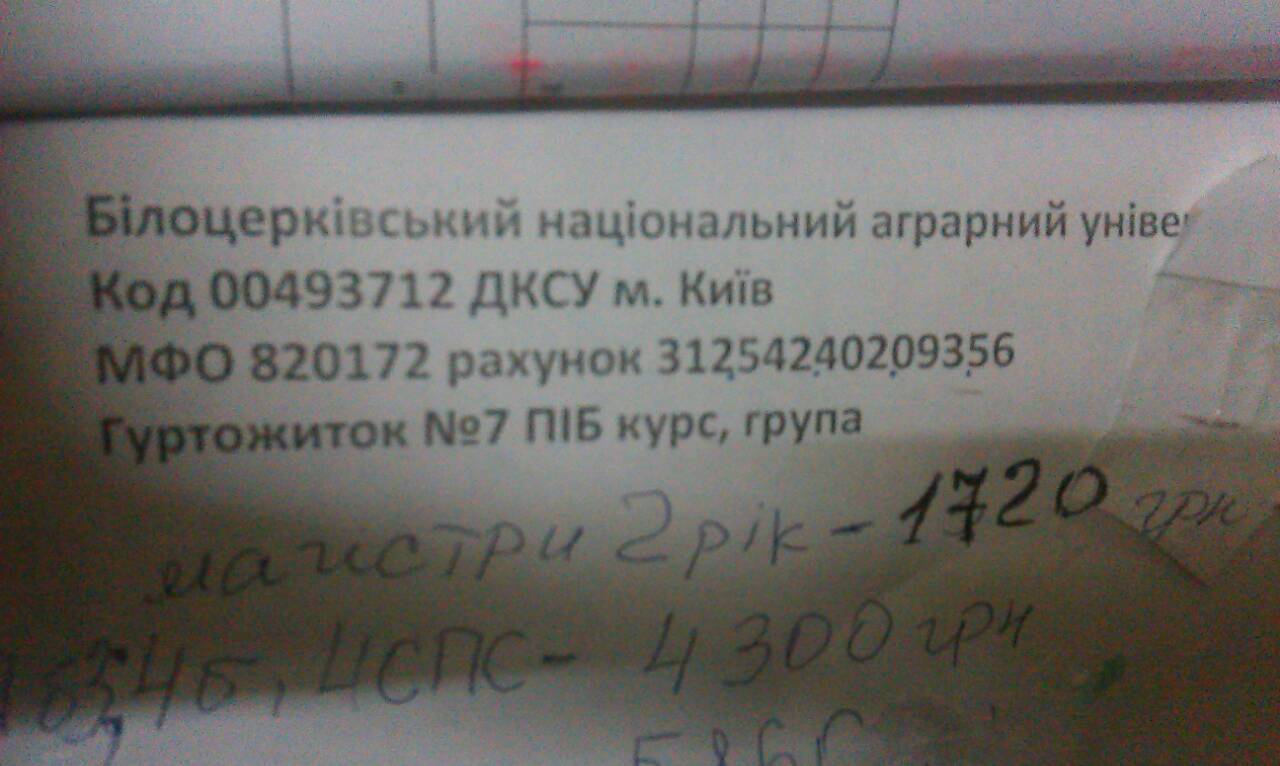 Білоцерківський національний аграрний універ
Код 00493712 ДКСУ м. Київ
МФО 820172 рахунок 31254240209356
Гуртожиток №7 ПІБ курс, група
магістри 2 рік - 1720 грн
4СПС - 4300 грн